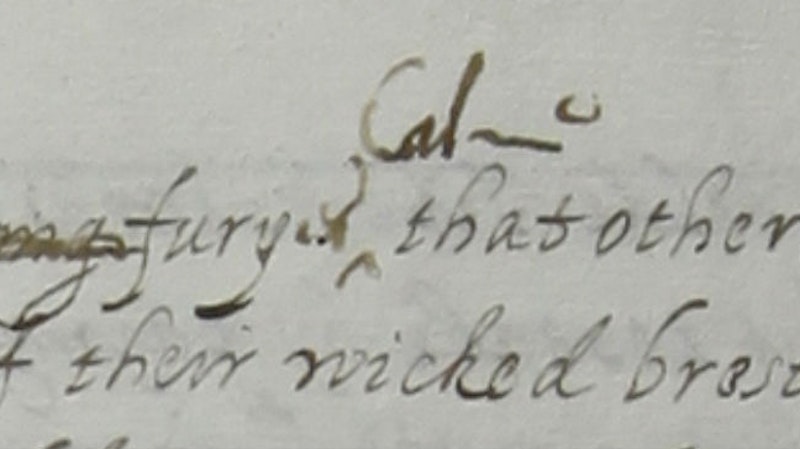 Cal
fury that other
their wicked brest